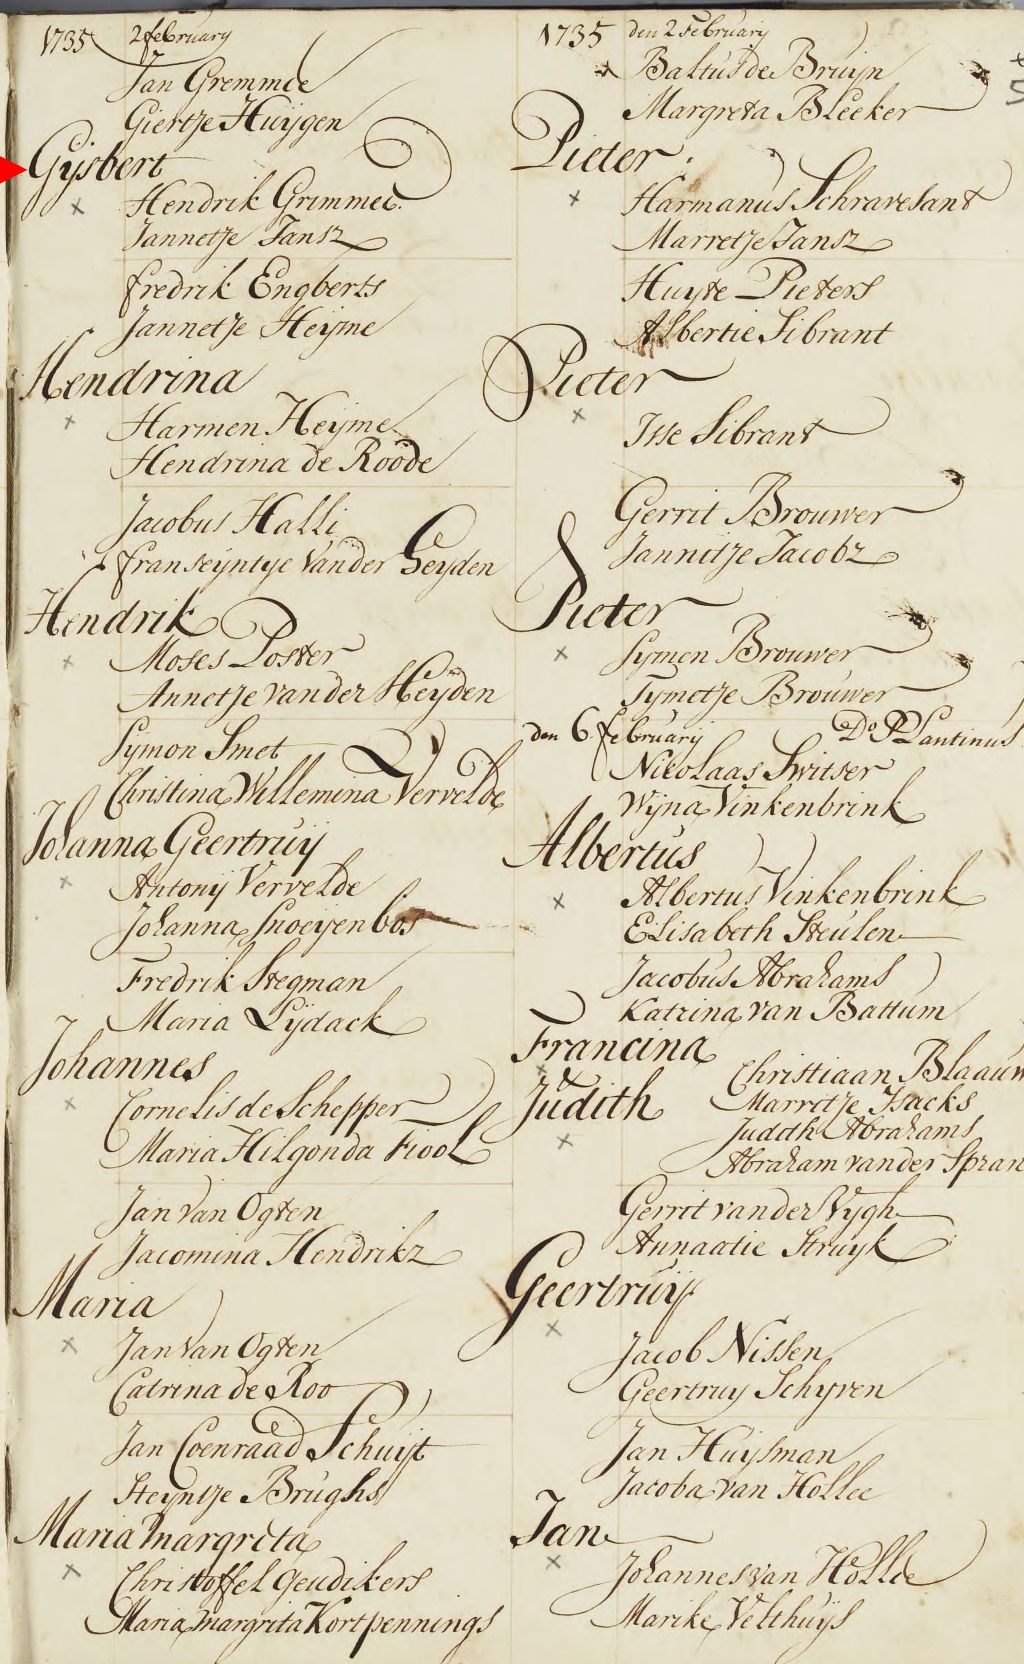 1735 2 february
Jan Gremmee
Giertje Huijgen
Gijsbert
Hendrik Grimmee
Jannetje Jansz
fredrik Engberts
Jannetje Heijme
Hendrina
Harmen Heijme
Hendrina de Roode
Jacobus Halli
franseijntje Vander Heyden
Hendrik
Moses Poster
Annetje van der Heyden
Symon Smet
Christina Willemina Vervelde
Johanna Geertruij
Antonij Vervelde
Johanna Snoeijenbos
Fredrik Stegman
Maria Lydack
Johannes
Cornelis de Schepper
Maria Hilgonda Fiool
Jan van Ogten
Jacomina Hendrikz
Maria
Jan van Ogten
Catrina de Roo
Jan Coenraad Schuijt
Steyntje Brughs
Maria margrita
Christoffel Geudikers
Maria margrita Kortpennings
1735 den 2 February
Baltus de Bruijn
Margreta Bleeker
Pieter
Harmanus Schravesant
Marretje Jansz
Huyte Pieters
Albertie Sibrant
Pieter
Isse Sibrant
Gerrit Brouwer
Jannitje Jacobz
Pieter
Symen Brouwer
Tymetje Brouwer
den 6 february Do P Plantinus
Nikolaas Switser
Wijna Vinkenbrink
Albertus
Albertus Vinkenbrink
Elisabeth Steulen
Jacobus Abrahams
Katrina van Battum
Francina
Christiaan Blaauw
Judith Marretje Isacks
Judith Abrahams
Abraham vander Spran
Gerrit vander Vygh
Annaatie Struyk
Geertruij
Jacob Nissen
Geertruy Schyven
Jan Huysman
Jacoba van Hollee
Jan
Johannes van Hollee
Marike Velthuijs